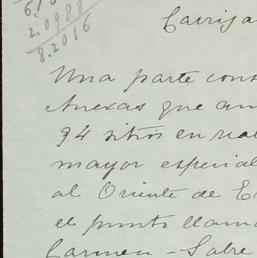 2.0988
8.2016
Una parte
Anexas que
94 sitios en
mayor especial
al Oriente de
el punto llam
Carmen - Sobre